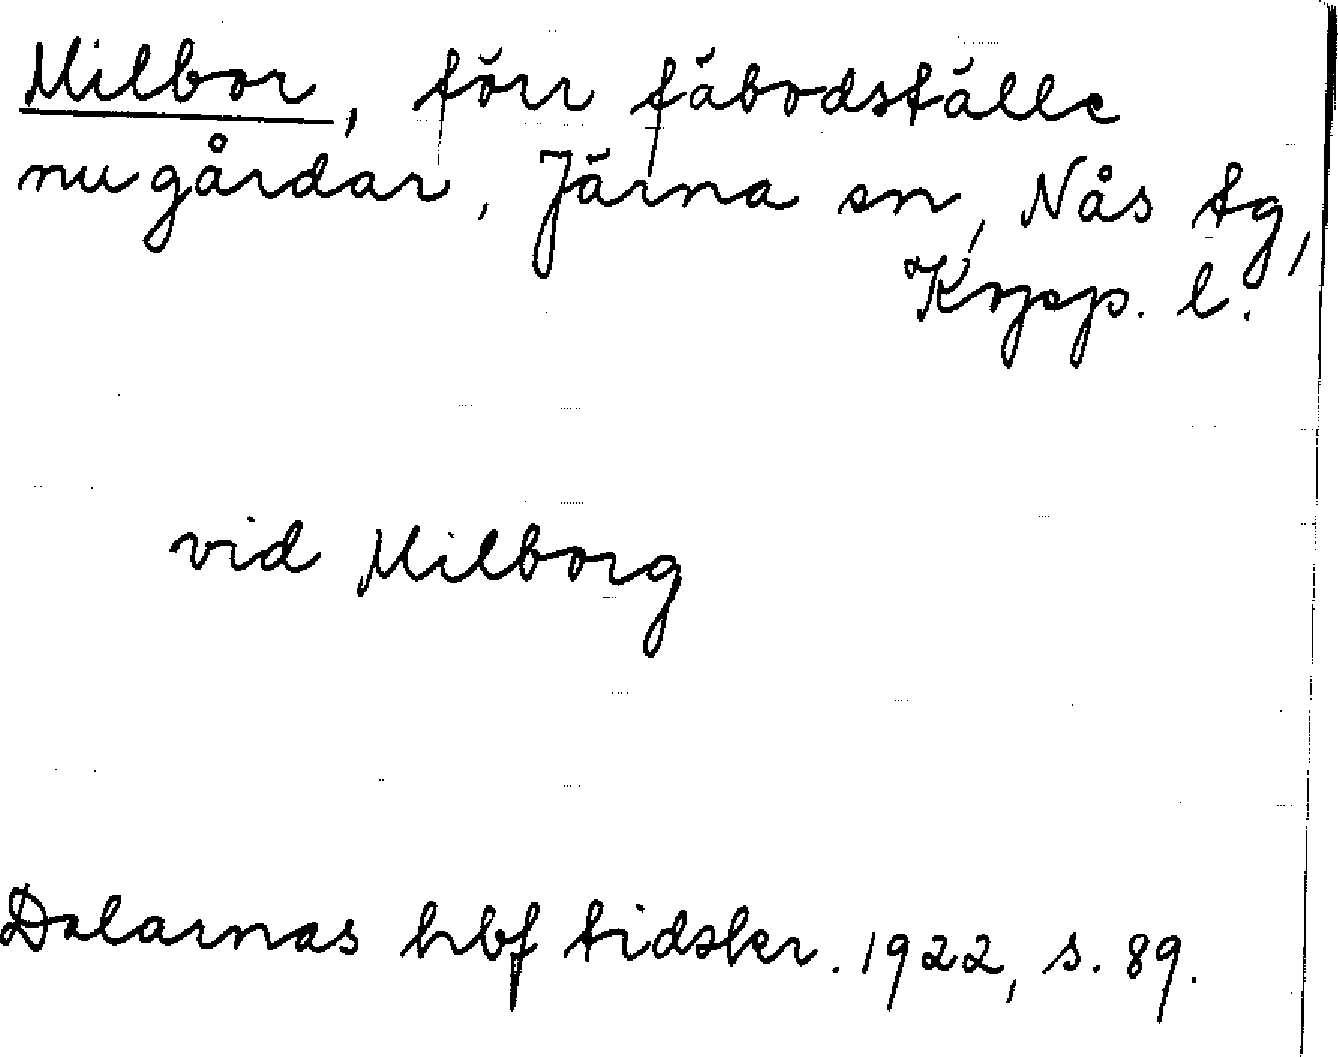 Milbor, förr fäbodställe
nu gårdar, Järna sn, Nås tg,
Kopp. l.
vid Milborg
Dalarnas hbf tidskr. 1922, s. 89.